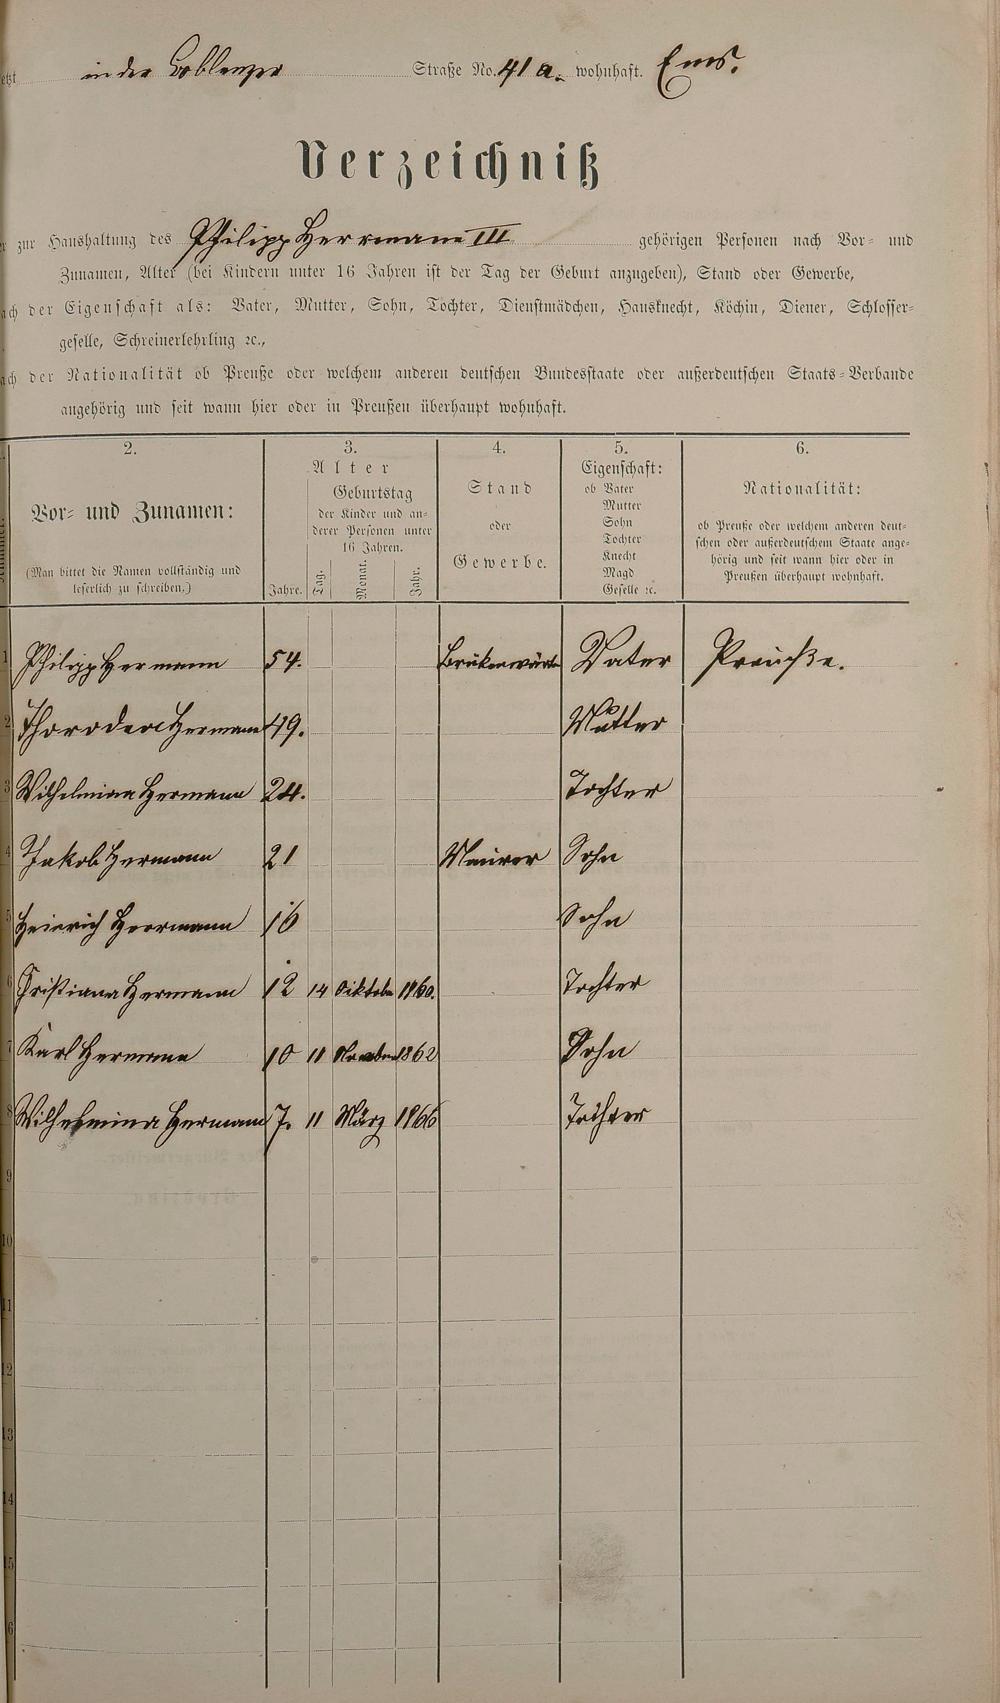 etzt in der Coblenzer Straße No. 41 a. wohnhaft. Ems.
Verzeichniß
r zur Haushaltung des Philipp Herrmann III gehörigen Personen nach Vor- und
Zunamen, Alter (bei Kindern unter 16 Jahren ist der Tag der Geburt anzugeben), Stand oder Gewerbe,
ach der Eigenschaft als: Vater, Mutter, Sohn, Tochter, Dienstmädchen, Hausknecht, Köchin, Diener, Schlosser-
geselle, Schreinerlehrling ꝛc.,
ach der Nationalität ob Preuße oder welchem anderen deutschen Bundesstaate oder außerdeutschen Staats-Verbande
angehörig und seit wann hier oder in Preußen überhaupt wohnhaft.
2. 3. 4. 5. 6.
Vor- und Zunamen:
(Man bittet die Namen vollständig und
leserlich zu schreiben.)
Alter
Jahre.
Geburtstag
der Kinder und an-
derer Personen unter
16 Jahren.
Tag. Monat. Jahr.
Stand
oder
Gewerbe.
Eigenschaft:
ob Vater
Mutter
Sohn
Tochter
Knecht
Magd
Geselle ꝛc.
Nationalität:
ob Preuße oder welchem anderen deut-
schen oder außerdeutschem Staate ange-
hörig und seit wann hier oder in
Preußen überhaupt wohnhaft.
1 Philipp Hermann 54. Brükenwärter Vater Preuße.
2 Hermann 49. Mutter
3 Wilhelmina Hermann 24. Tochter
4 Jakob Hermann 21 Maurer Sohn
5 Heinrich Herrmann 16 Sohn
6 Cristiana Hermann 12 14 Oiktober 1860. Tochter
7 Karl Hermann 10 11 November 1862 Sohn
8 Wilhelmina Hermann 7. 11 März 1866 Tochter
9
10
11
12
13
14
15
6